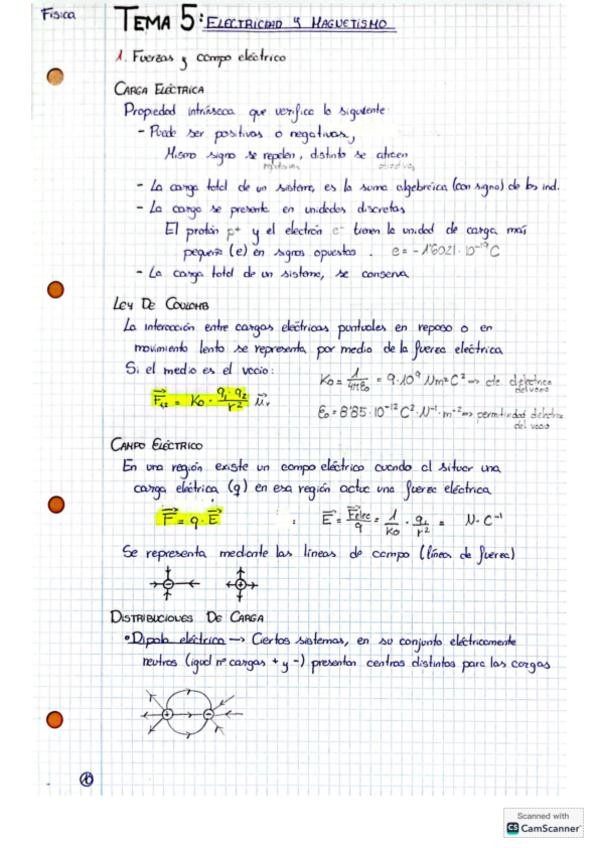 Física
TEMA 5: ELECTRICIDAD Y MAGNETISMO
1. Fuerzas y campo eléctrico
CARGA ELÉCTRICA
Propiedad intrínseca que verifica lo siguiente:
- Puede ser positivas o negativas,
Mismo signo se repelen, distinto se atraen
- La carga total de un sistema, es la suma algebraica (con signo) de los ind.
- La carga se presenta en unidades discretas
El protón p⁺ y el electrón e⁻ tienen la unidad de carga más
pequeña (e) en signos opuestos. e = -1'6021·10⁻¹⁹ C
- La carga total de un sistema, se conserva
LEY DE COULOMB
La interacción entre cargas eléctricas puntuales en reposo o en
movimiento lento se representa por medio de la fuerza eléctrica
Si el medio es el vacío: K₀ = 1/4πε₀ = 9·10⁹ Nm²C² => cte. dieléctrica del vacío
F₁,₂ = K₀ · q₁·q₂/r² u⃗r ε₀ = 8'85·10⁻¹² C²·N⁻¹·m⁻² => permitividad dieléctrica del vacío
CAMPO ELÉCTRICO
En una región existe un campo eléctrico cuando al situar una
carga eléctrica (q) en esa región actúe una fuerza eléctrica
F⃗ = q·E⃗ : E⃗ = F⃗elec/q = 1/K₀ · q₁/r² = N·C⁻¹
Se representa mediante las líneas de campo (líneas de fuerza)
DISTRIBUCIONES DE CARGA
• Dipolo eléctrico → Ciertos sistemas, en su conjunto eléctricamente
neutros (igual nº cargas + y -) presentan centros distintos para las cargas
1
Scanned with
CS CamScanner